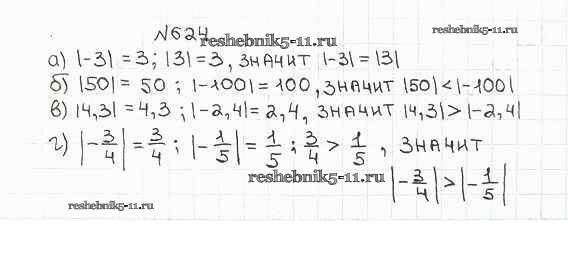 №624
reshebnik5-11.ru
reshebnik5-11.ru
а) |-3| = 3; |3| = 3, значит |-3| = |3|
б) |50| = 50; |-100| = 100, значит |50| < |-100|
в) |4,3| = 4,3; |-2,4| = 2,4, значит |4,3| > |-2,4|
г) |-3/4| = 3/4; |-1/5| = 1/5; 3/4 > 1/5, значит
reshebnik5-11.ru
|-3/4| > |-1/5|
reshebnik5-11.ru